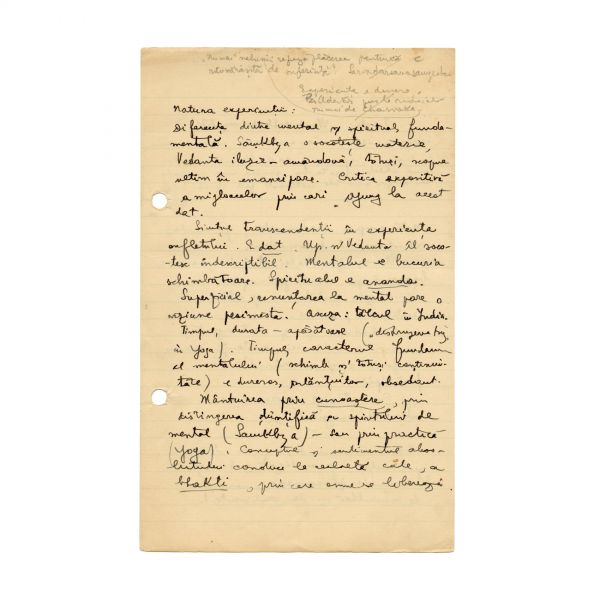 "Numai nebunii refuză plăcerea pentru că e
de suferință" Sarvadarsanasamgraha
Experiența e durere.
numai de Charvaka.
Natura experienții:
Diferența dintre mental și spiritual, funda-
mentală. Sâmkhya o socotește materie,
Vedanta iluzie – amândouă, totuși, scopue
ultim în emancipare. Critica
a mijloacelor prin cari ajung la acest
dat.
Simțul transcendenții în experiența
sufletului. E dat. Up. și Vedanta îl soco-
tesc indescriptibil. Mentalul e bucurie
schimbătoare. Spiritualul e ananda.
Superficial, renunțarea la mental pare o
viziune pesimistă. Asceza: tâlcul în India.
Timpul, durata – apăsătoare ("destrugerea
în Yoga). Timpul, caracterul fundam
al mentalului (schimb și totuși continui-
tate) e dureros, înlănțuitor, obsedant.
Mântuirea prin cunoaștere, prin
distingerea științifică a spiritului de
mental (Sâmkhya) – sau prin practică
(Yoga). Conceptul și sentimentul abso-
lutului conduce la celaltă cale, a
bhakti, prin care omul se liberează.